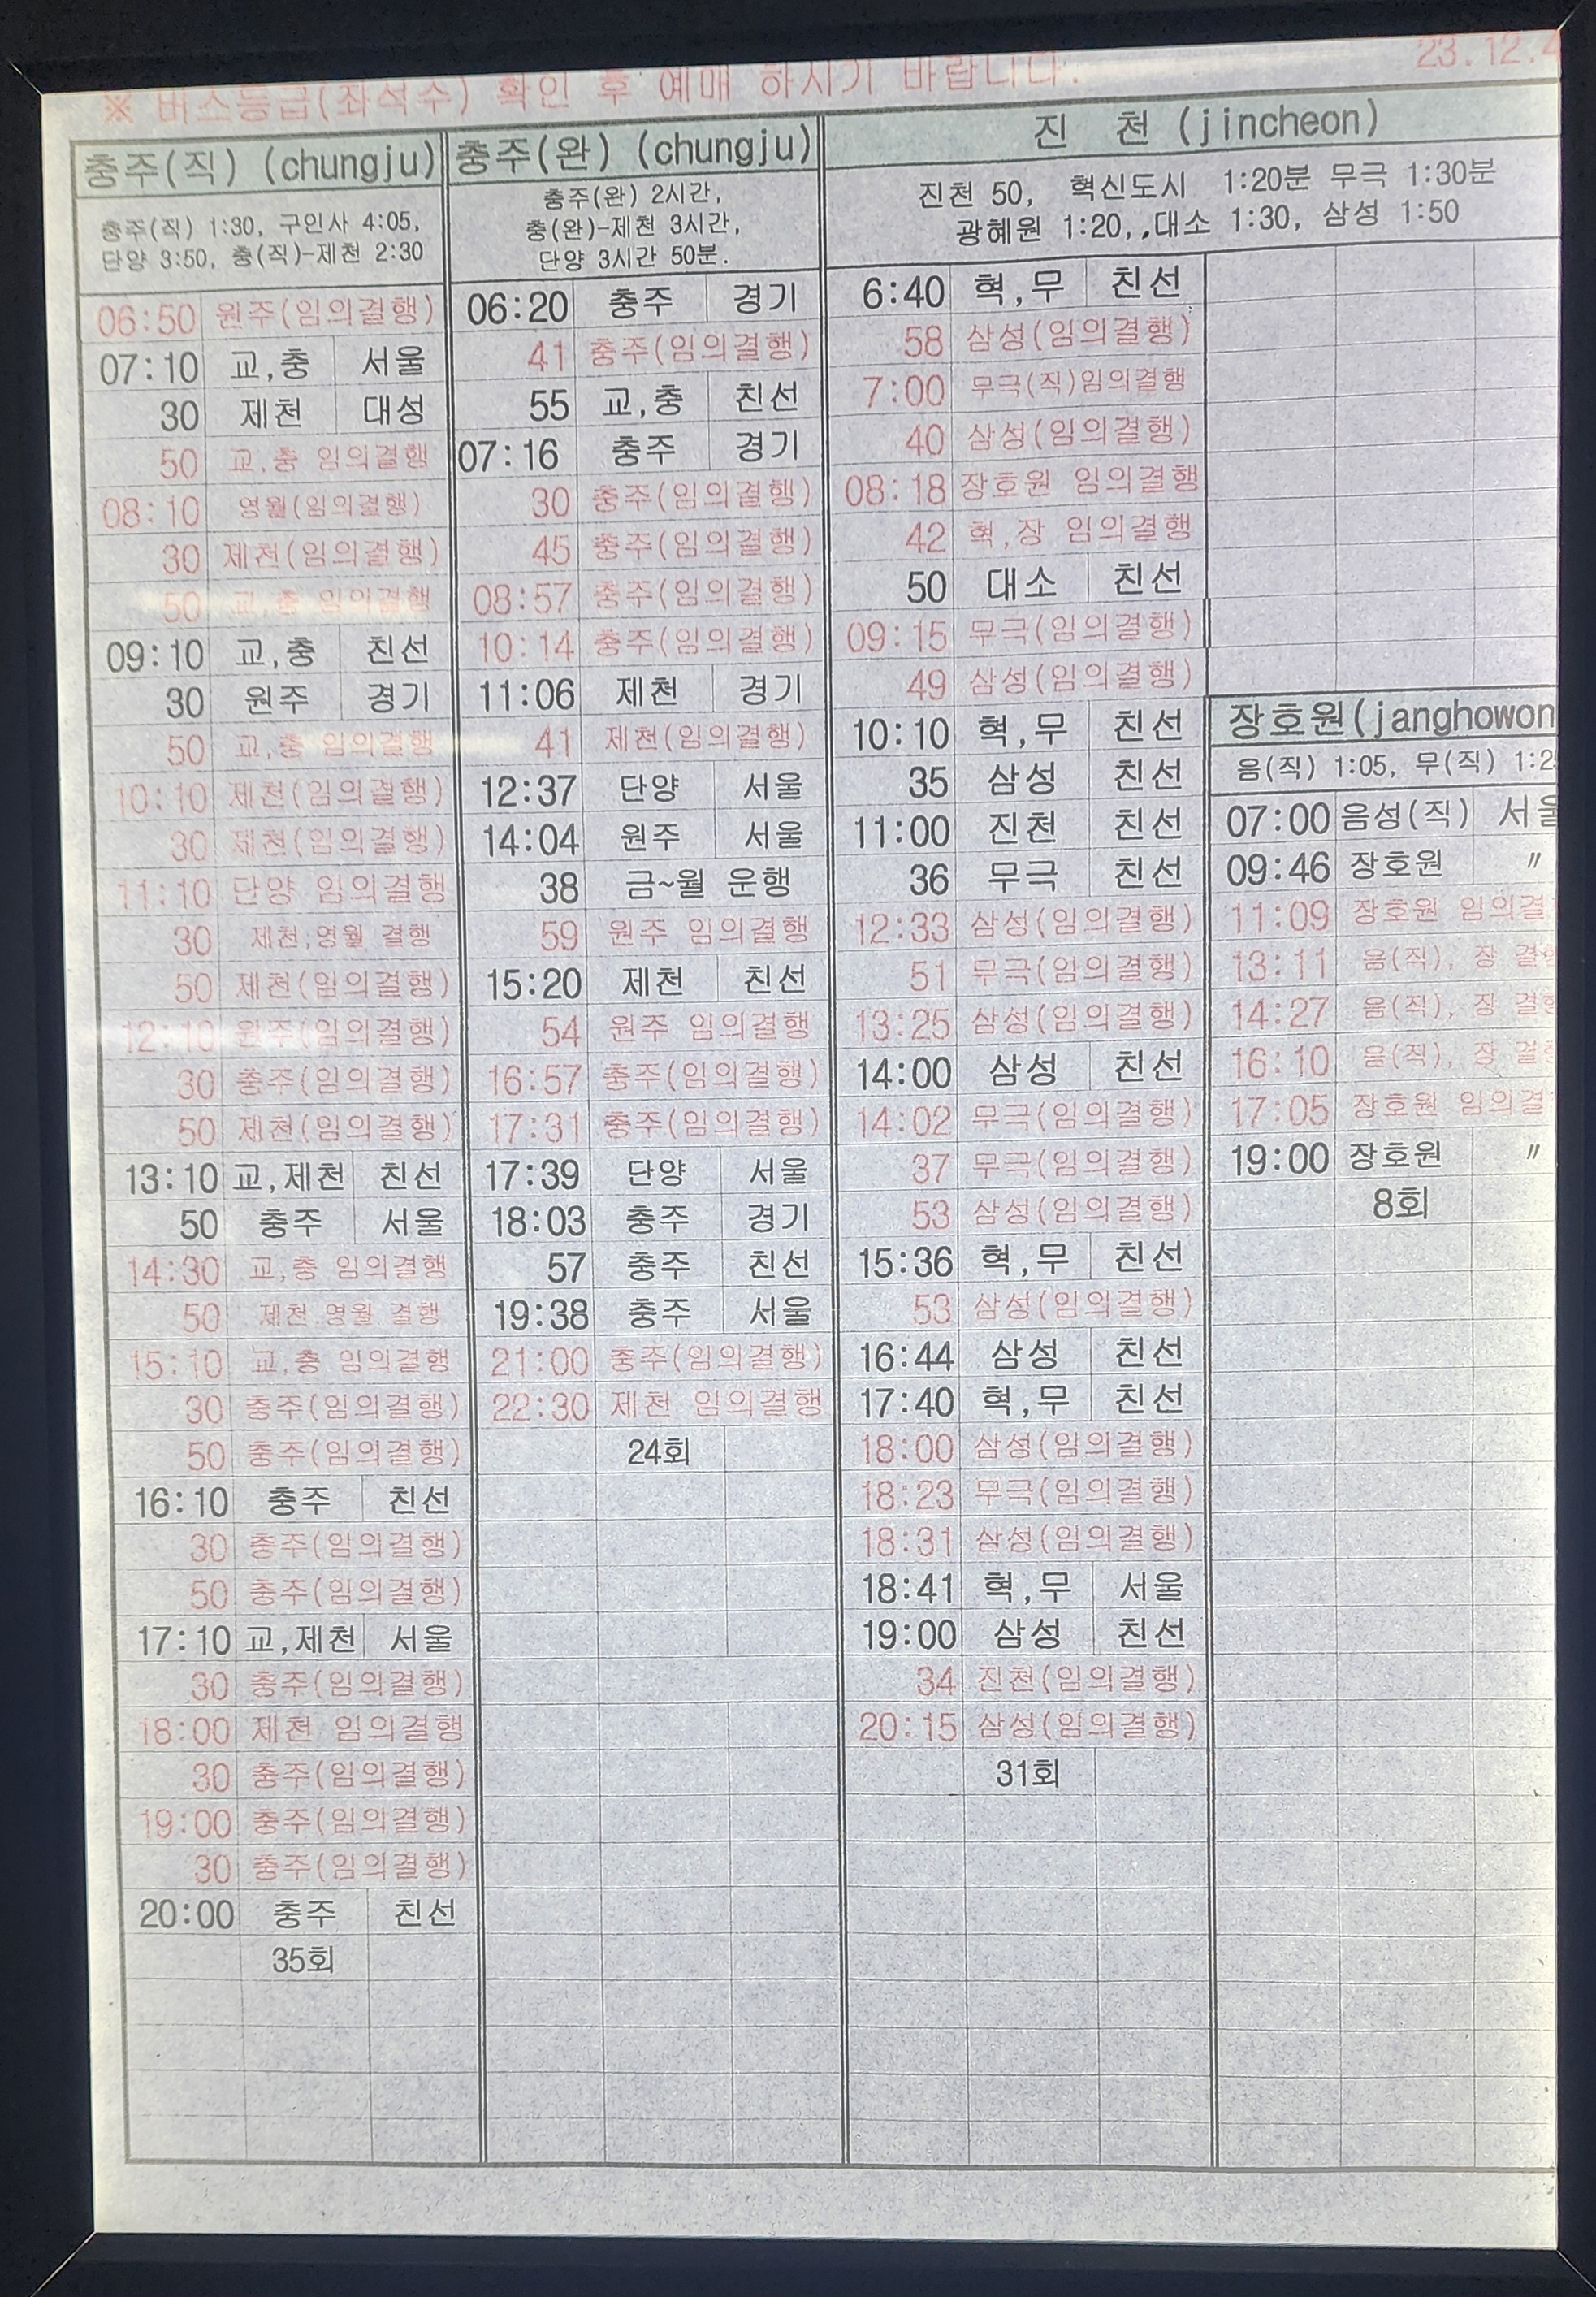 ※ 버스등급(좌석수) 확인 후 예매 하시기 바랍니다.
23.12.4
충주(직) (chungju)
충주(직) 1:30, 구인사 4:05,
단양 3:50, 충(직)-제천 2:30
06:50 원주(임의결행)
07:10 교,충 서울
30 제천 대성
50 교,충 임의결행
08:10 영월(임의결행)
30 제천(임의결행)
50 교,충 임의결행
09:10 교,충 친선
30 원주 경기
50 교,충 임의결행
10:10 제천(임의결행)
30 제천(임의결행)
11:10 단양 임의결행
30 제천,영월 결행
50 제천(임의결행)
12:10 원주(임의결행)
30 충주(임의결행)
50 제천(임의결행)
13:10 교,제천 친선
50 충주 서울
14:30 교,충 임의결행
50 제천 영월 결행
15:10 교,충 임의결행
30 충주(임의결행)
50 충주(임의결행)
16:10 충주 친선
30 충주(임의결행)
50 충주(임의결행)
17:10 교,제천 서울
30 충주(임의결행)
18:00 제천 임의결행
30 충주(임의결행)
19:00 충주(임의결행)
30 충주(임의결행)
20:00 충주 친선
35회
충주(완) (chungju)
충주(완) 2시간,
충(완)-제천 3시간,
단양 3시간 50분.
06:20 충주 경기
41 충주(임의결행)
55 교,충 친선
07:16 충주 경기
30 충주(임의결행)
45 충주(임의결행)
08:57 충주(임의결행)
10:14 충주(임의결행)
11:06 제천 경기
41 제천(임의결행)
12:37 단양 서울
14:04 원주 서울
38 금~월 운행
59 원주 임의결행
15:20 제천 친선
54 원주 임의결행
16:57 충주(임의결행)
17:31 충주(임의결행)
17:39 단양 서울
18:03 충주 경기
57 충주 친선
19:38 충주 서울
21:00 충주(임의결행)
22:30 제천 임의결행
24회
진 천 (jincheon)
진천 50, 혁신도시 1:20분 무극 1:30분
광혜원 1:20,.대소 1:30, 삼성 1:50
6:40 혁,무 친선
58 삼성(임의결행)
7:00 무극(직)임의결행
40 삼성(임의결행)
08:18 장호원 임의결행
42 혁,장 임의결행
50 대소 친선
09:15 무극(임의결행)
49 삼성(임의결행)
10:10 혁,무 친선
35 삼성 친선
11:00 진천 친선
36 무극 친선
12:33 삼성(임의결행)
51 무극(임의결행)
13:25 삼성(임의결행)
14:00 삼성 친선
14:02 무극(임의결행)
37 무극(임의결행)
53 삼성(임의결행)
15:36 혁,무 친선
53 삼성(임의결행)
16:44 삼성 친선
17:40 혁,무 친선
18:00 삼성(임의결행)
18:23 무극(임의결행)
18:31 삼성(임의결행)
18:41 혁,무 서울
19:00 삼성 친선
34 진천(임의결행)
20:15 삼성(임의결행)
31회
장호원(janghowon
음(직) 1:05, 무(직) 1:2
07:00 음성(직) 서울
09:46 장호원 〃
11:09 장호원 임의결
13:11 음(직), 장 결행
14:27 음(직), 장 결행
16:10 음(직), 장 결행
17:05 장호원 임의결
19:00 장호원 〃
8회